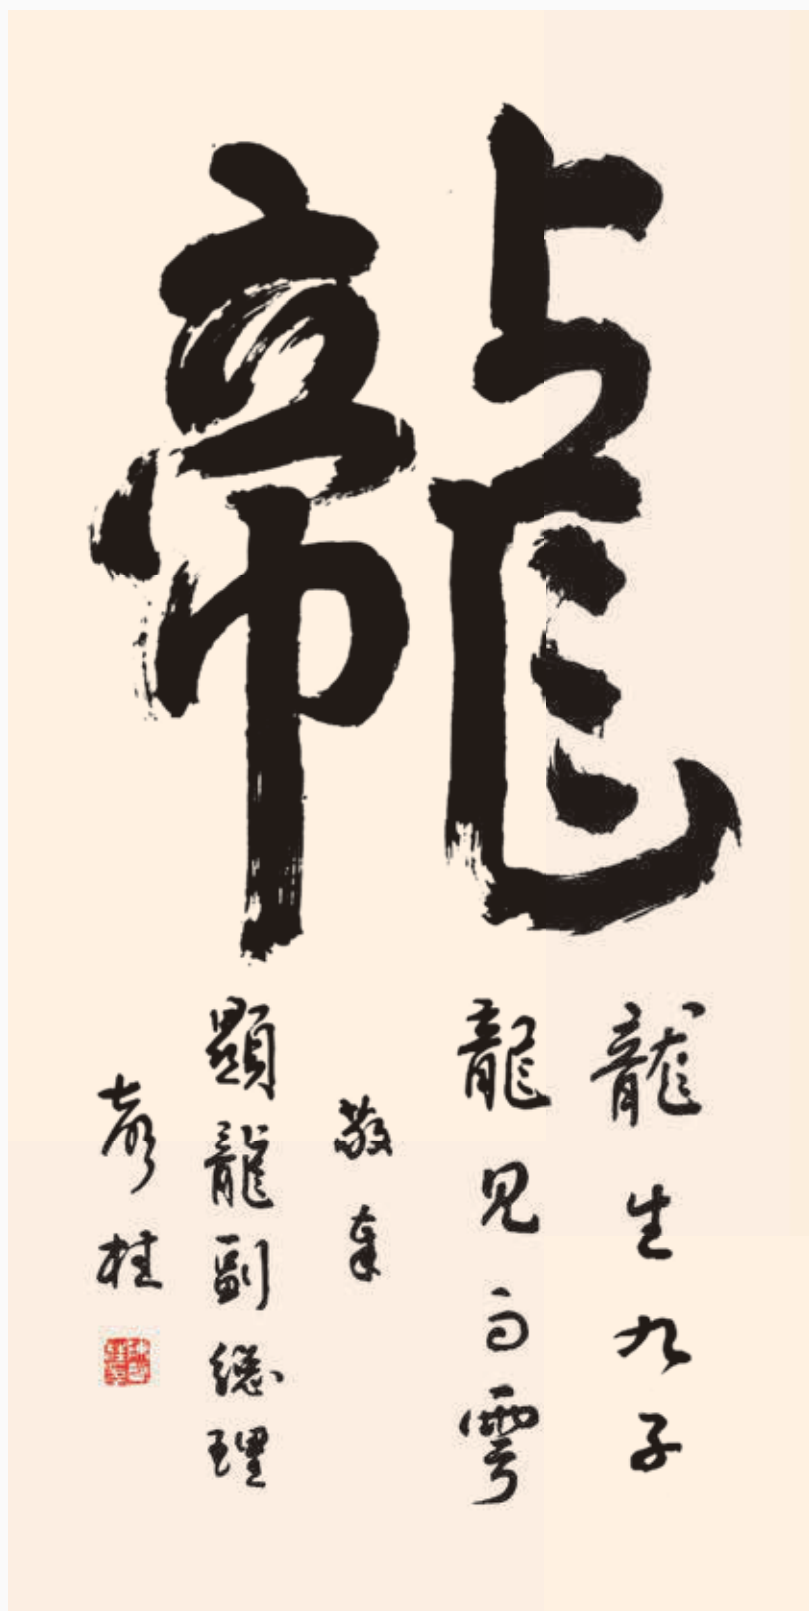 龍
龍生九子
龍見而雩
敬奉
顯龍副總理
聲桂